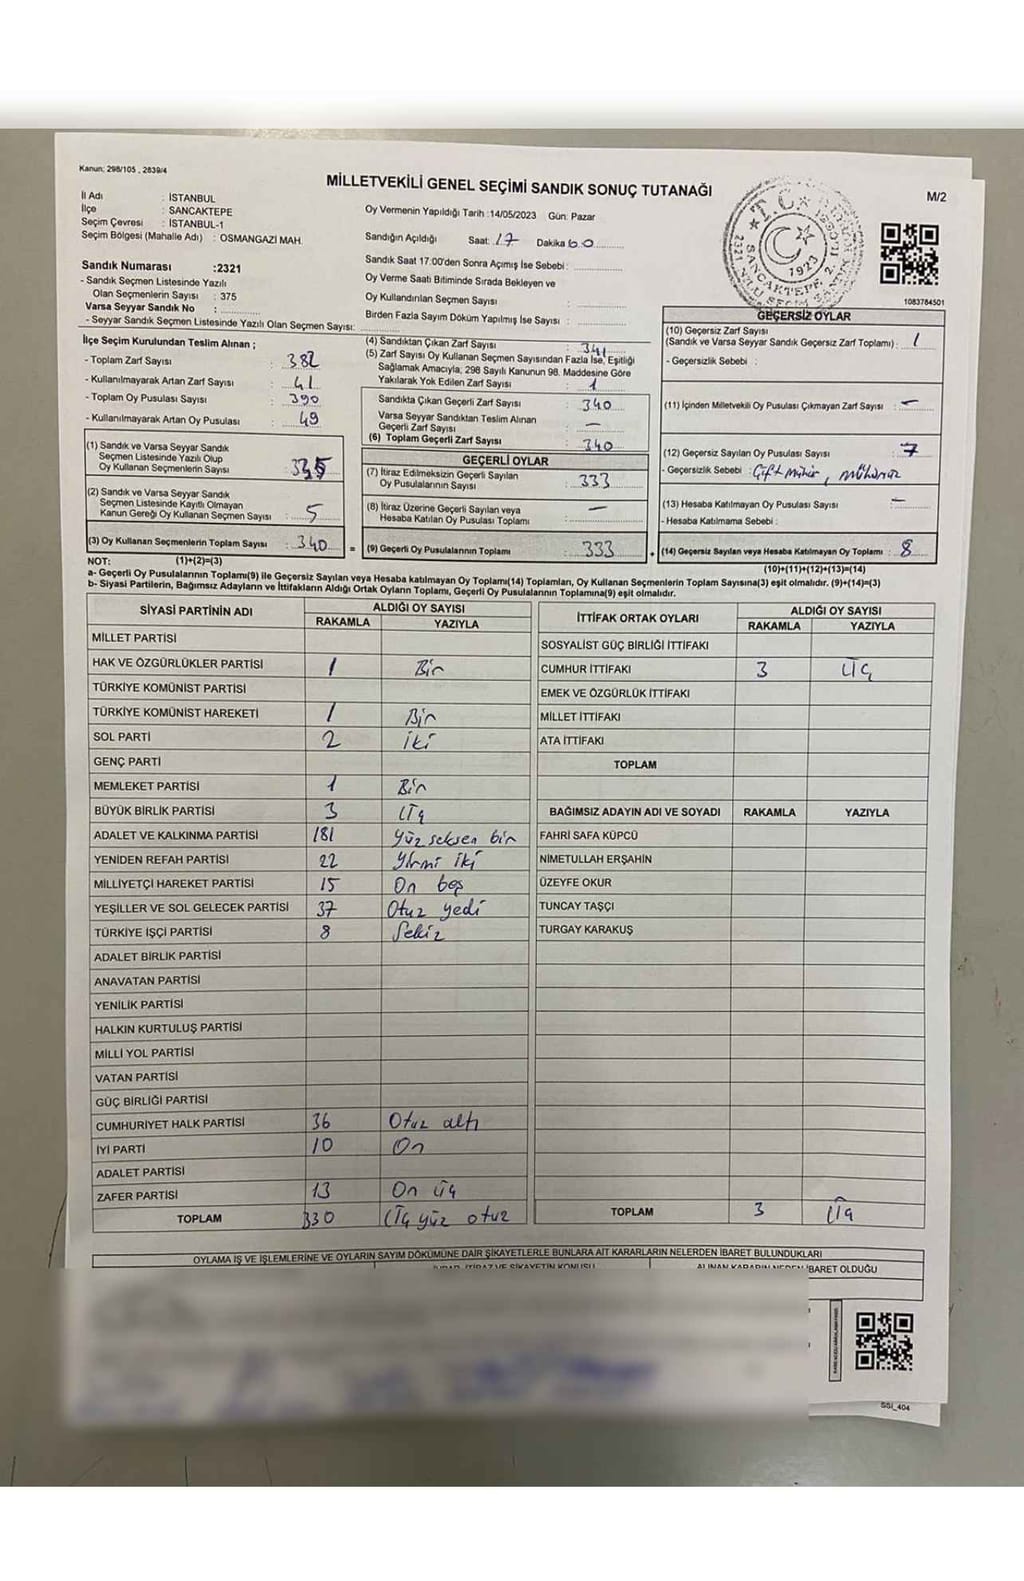 Kanun: 298/105 , 2839/4
MİLLETVEKİLİ GENEL SEÇİMİ SANDIK SONUÇ TUTANAĞI
M/2
İl Adı : İSTANBUL
İlçe : SANCAKTEPE
Seçim Çevresi : İSTANBUL-1
Seçim Bölgesi (Mahalle Adı) : OSMANGAZİ MAH.
Sandık Numarası :2321
- Sandık Seçmen Listesinde Yazılı
Olan Seçmenlerin Sayısı : 375
Varsa Seyyar Sandık No :
- Seyyar Sandık Seçmen Listesinde Yazılı Olan Seçmen Sayısı:
Oy Vermenin Yapıldığı Tarih :14/05/2023 Gün: Pazar
Sandığın Açıldığı Saat: 17 Dakika
Sandık Saat 17:00'den Sonra Açımış İse Sebebi:
Oy Verme Saati Bitiminde Sırada Bekleyen ve
Oy Kullandırılan Seçmen Sayısı :
Birden Fazla Sayım Döküm Yapılmış İse Sayısı :
T.C.
1923
SANCAKTEPE 2.
1083784501
İlçe Seçim Kurulundan Teslim Alınan ;
- Toplam Zarf Sayısı : 382
- Kullanılmayarak Artan Zarf Sayısı : 41
- Toplam Oy Pusulası Sayısı : 390
- Kullanılmayarak Artan Oy Pusulası : 49
(1) Sandık ve Varsa Seyyar Sandık
Seçmen Listesinde Yazılı Olup
Oy Kullanan Seçmenlerin Sayısı : 335
(2) Sandık ve Varsa Seyyar Sandık
Seçmen Listesinde Kayıtlı Olmayan
Kanun Gereği Oy Kullanan Seçmen Sayısı : 5
(3) Oy Kullanan Seçmenlerin Toplam Sayısı : 340
(4) Sandıktan Çıkan Zarf Sayısı : 341
(5) Zarf Sayısı Oy Kullanan Seçmen Sayısından Fazla İse, Eşitliği
Sağlamak Amacıyla, 298 Sayılı Kanunun 98. Maddesine Göre
Yakılarak Yok Edilen Zarf Sayısı : 1
Sandıkta Çıkan Geçerli Zarf Sayısı : 340
Varsa Seyyar Sandıktan Teslim Alınan
Geçerli Zarf Sayısı : —
(6) Toplam Geçerli Zarf Sayısı : 340
GEÇERLİ OYLAR
(7) İtiraz Edilmeksizin Geçerli Sayılan
Oy Pusulalarının Sayısı : 333
(8) İtiraz Üzerine Geçerli Sayılan veya
Hesaba Katılan Oy Pusulası Toplamı : —
= (9) Geçerli Oy Pusulalarının Toplamı : 333
GEÇERSİZ OYLAR
(10) Geçersiz Zarf Sayısı
(Sandık ve Varsa Seyyar Sandık Geçersiz Zarf Toplamı) : 1
- Geçersizlik Sebebi :
(11) İçinden Milletvekili Oy Pusulası Çıkmayan Zarf Sayısı : —
(12) Geçersiz Sayılan Oy Pusulası Sayısı : 7
- Geçersizlik Sebebi : Çift mühür, mühürsüz
(13) Hesaba Katılmayan Oy Pusulası Sayısı : —
- Hesaba Katılmama Sebebi :
+ (14) Geçersiz Sayılan veya Hesaba Katılmayan Oy Toplamı : 8
NOT: (1)+(2)=(3)
(10)+(11)+(12)+(13)=(14)
a- Geçerli Oy Pusulalarının Toplamı(9) ile Geçersiz Sayılan veya Hesaba katılmayan Oy Toplamı(14) Toplamları, Oy Kullanan Seçmenlerin Toplam Sayısına(3) eşit olmalıdır. (9)+(14)=(3)
b- Siyasi Partilerin, Bağımsız Adayların ve İttifakların Aldığı Ortak Oyların Toplamı, Geçerli Oy Pusulalarının Toplamına(9) eşit olmalıdır.
SİYASİ PARTİNİN ADI ALDIĞI OY SAYISI
RAKAMLA YAZIYLA
MİLLET PARTİSİ
HAK VE ÖZGÜRLÜKLER PARTİSİ 1 Bir
TÜRKİYE KOMÜNİST PARTİSİ
TÜRKİYE KOMÜNİST HAREKETİ 1 Bir
SOL PARTİ 2 iki
GENÇ PARTİ
MEMLEKET PARTİSİ 1 Bir
BÜYÜK BİRLİK PARTİSİ 3 Üç
ADALET VE KALKINMA PARTİSİ 181 Yüz seksen bir
YENİDEN REFAH PARTİSİ 22 Yirmi iki
MİLLİYETÇİ HAREKET PARTİSİ 15 On beş
YEŞİLLER VE SOL GELECEK PARTİSİ 37 Otuz yedi
TÜRKİYE İŞÇİ PARTİSİ 8 Sekiz
ADALET BİRLİK PARTİSİ
ANAVATAN PARTİSİ
YENİLİK PARTİSİ
HALKIN KURTULUŞ PARTİSİ
MİLLİ YOL PARTİSİ
VATAN PARTİSİ
GÜÇ BİRLİĞİ PARTİSİ
CUMHURİYET HALK PARTİSİ 36 Otuz altı
İYİ PARTİ 10 On
ADALET PARTİSİ
ZAFER PARTİSİ 13 On üç
TOPLAM 330 Üç yüz otuz
İTTİFAK ORTAK OYLARI ALDIĞI OY SAYISI
RAKAMLA YAZIYLA
SOSYALİST GÜÇ BİRLİĞİ İTTİFAKI
CUMHUR İTTİFAKI 3 Üç
EMEK VE ÖZGÜRLÜK İTTİFAKI
MİLLET İTTİFAKI
ATA İTTİFAKI
TOPLAM
BAĞIMSIZ ADAYIN ADI VE SOYADI RAKAMLA YAZIYLA
FAHRİ SAFA KÜPCÜ
NİMETULLAH ERŞAHİN
ÜZEYFE OKUR
TUNCAY TAŞÇI
TURGAY KARAKUŞ
TOPLAM 3 Üç
OYLAMA İŞ VE İŞLEMLERİNE VE OYLARIN SAYIM DÖKÜMÜNE DAİR ŞİKAYETLERLE BUNLARA AİT KARARLARIN NELERDEN İBARET BULUNDUKLARI
İTİRAZ VE ŞİKAYETİN KONUSU
ALINAN KARARIN NEDEN İBARET OLDUĞU
SSI_404